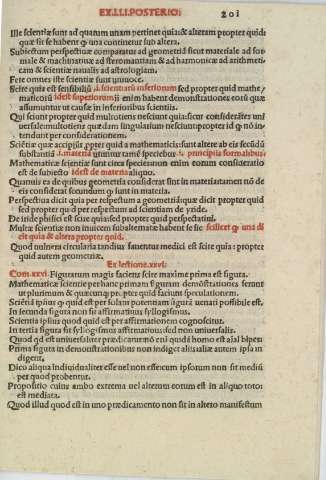 EX.LI.I.POSTERIO:
201
Ille scientiæ sunt ad quarum unam pertinet quia: & alteram propter quid:
quæ sic se habent q̃ una continetur sub altera.
Subiectum perspectiuæ comparatur ad geometriã sicut materiale ad for
male & machinatiuæ ad stereometriam & ad harmonicæ ad arithmeti
cam & scientiæ naualis ad astrologiam.
Fere omnes iste scientiæ sunt uniuocæ.
Scire quia est sensibiliũ .i. scientiarũ inferiorum sed propter quid mathe
maticorũ idest superiorum ii enim habent demonstrationes eorũ quæ
assumuntur ut causæ in inferioribus scientiis.
Qui sciunt propter quid multotiens nesciunt quia: sicut considerãtes uni
uersale: multotiens quædam singularium nesciunt propter id q̃ nõ in
tendunt per considerationem.
Sciẽtiæ quæ accipiũt propter quid a mathematicis: sunt alteræ ab eis secũdũ
substantiã .i. materiã utuntur tamẽ speciebus .i. principiis formalibus.
Mathematicæ scientiæ sunt circa species: non enim eorum consideratio
est de subiecto idest de materia aliquo.
Quamuis ea de quibus geometria considerat sint in materia: tamen nõ de
eis considerat secundum q̃ sunt in materia.
Perspectiua dicit quia per respectum a geometria: quæ dicit propter quid
sed propter quid per respectum ad scientiam de yride.
De iride phisici est scire quia: sed propter quid perspectiui.
Multæ scientiæ non inuicem subalternatæ habent se sic scilicet q̃ una di
cit quia & altera propter quid.
Quod uulnera circularia tardius sanentur medici est scire quia: propter
quid autem geometriæ.
Ex lectione .xxvi.
Com.xxvi. Figurarum magis faciens scire maxime prima est figura.
Mathematicæ scientiæ per hanc primam figuram demõstratiões ferunt
ut plurimum & quæcunq; propter quid faciunt speculationem.
Sciẽtiã ipsius q̃ quid est per solam potentiam figurã uenari possibile est.
In secunda figura non fit affirmatiuus syllogismus.
Scientia ipsius quod quid est per affirmationem cognoscitur.
In tertia figura fit syllogismus affirmatiuus sed non uniuersalis.
Quod qd est uniuersaliter prædicatur: nõ eni quodã homo est aĩal bipes
Prima figura in demonstrationibus non indiget aliis: aliæ autem ipsa in
digent.
Dico aliqua indiuidualiter esse uel non esse: cum ipsorum non sit mediũ
per quod probentur.
Propositio cuius ambo extrema uel alterum eorum est in aliquo toto:
est mediata.
Quod illud quod est in uno prædicamento non sit in altero manifestum